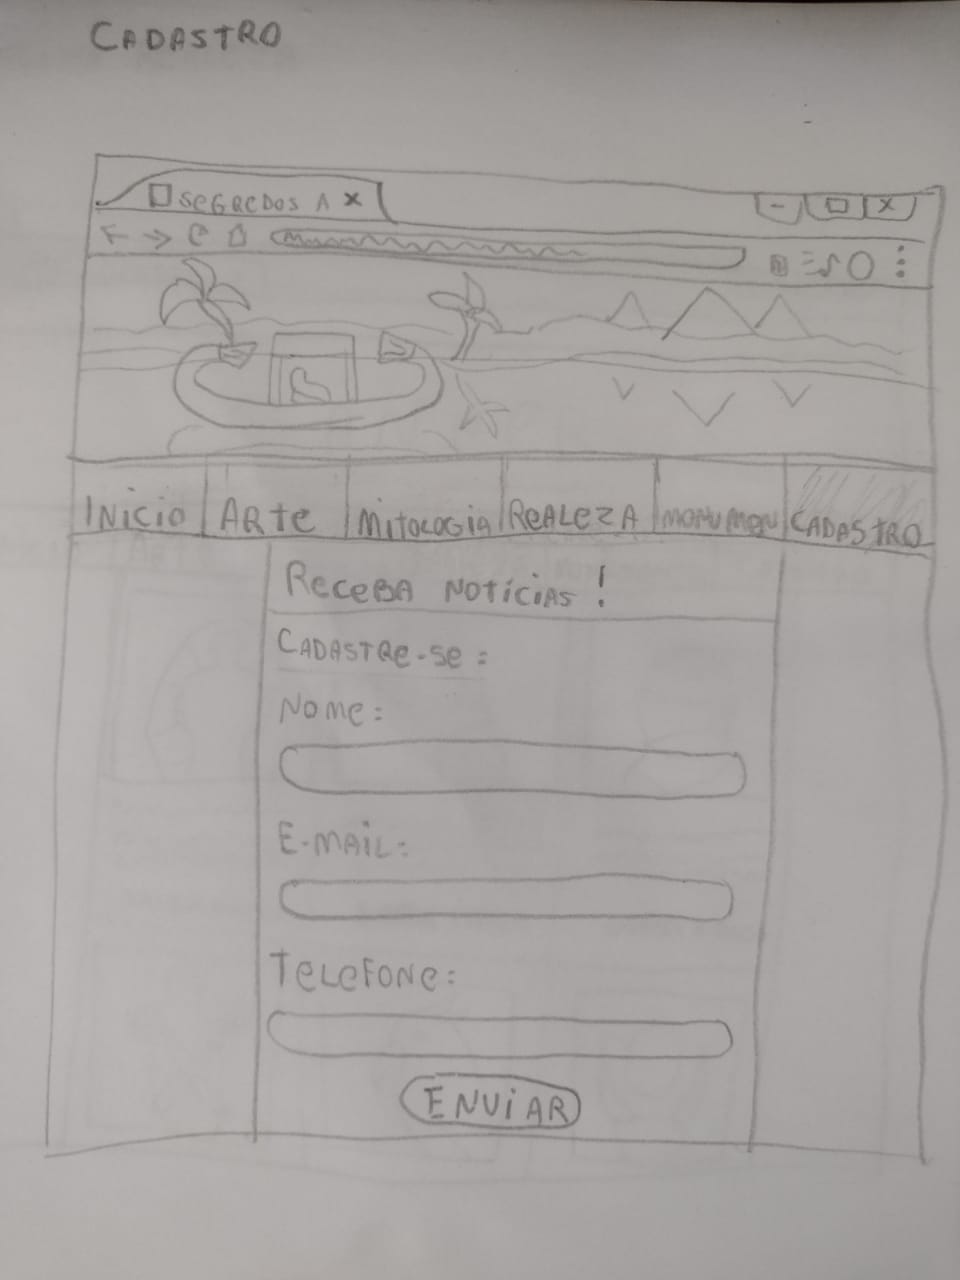 CADASTRO
SEGREDOS A X
INICIO ARTE MITOLOGIA REALEZA MONUMEN CADASTRO
RECEBA NOTÍCIAS!
CADASTRE-SE:
NOME:
E-MAIL:
TELEFONE:
ENVIAR